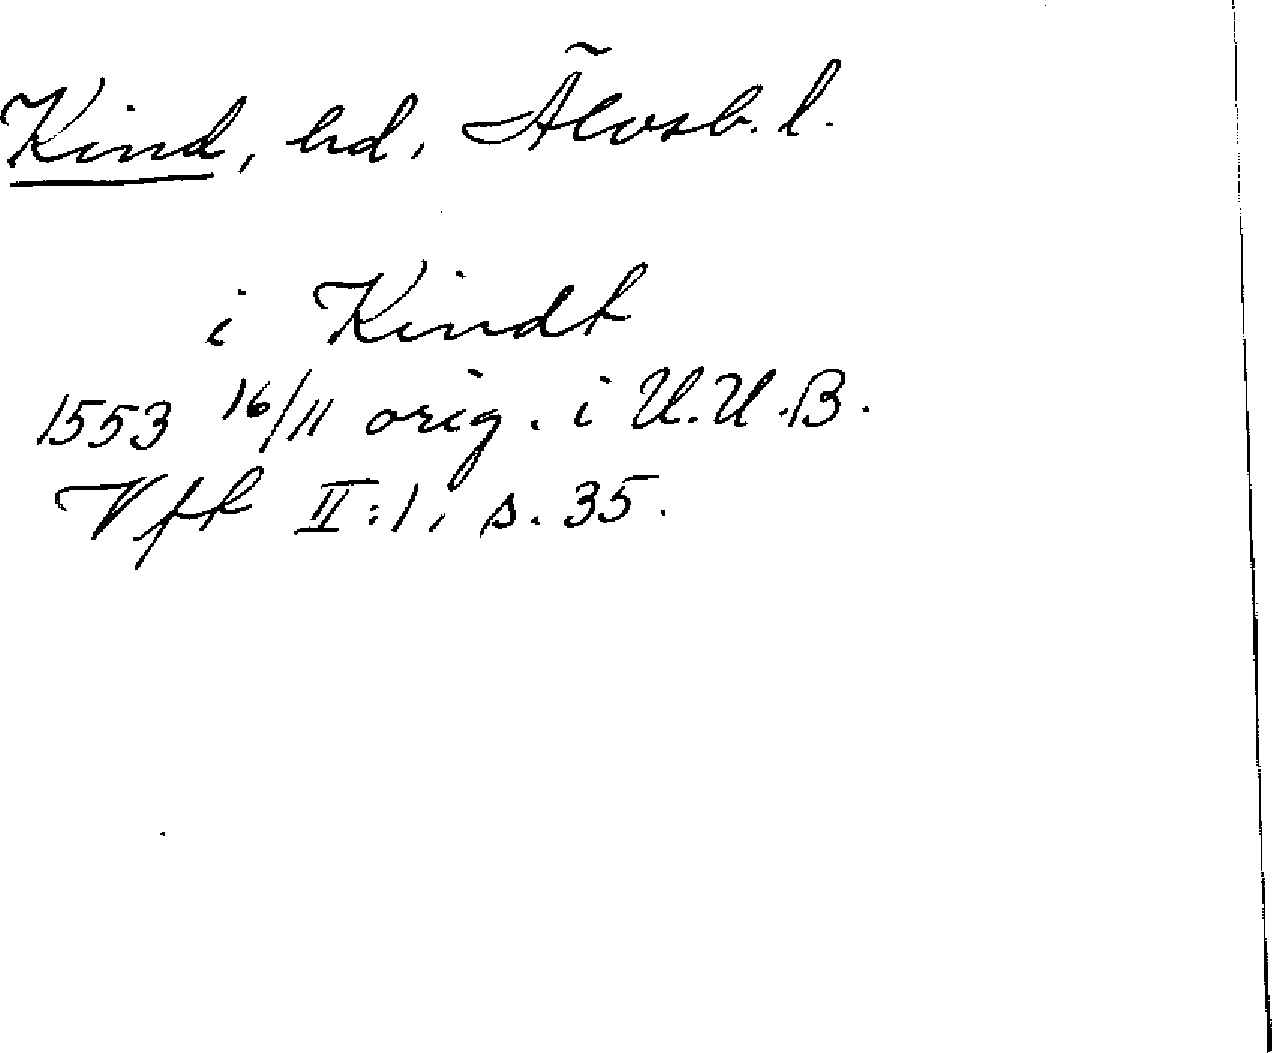 Kind, hd, Älvsb. l.
i Kindt
1553 16/11 orig. i U.U.B.
Vfk II:1, s. 35.